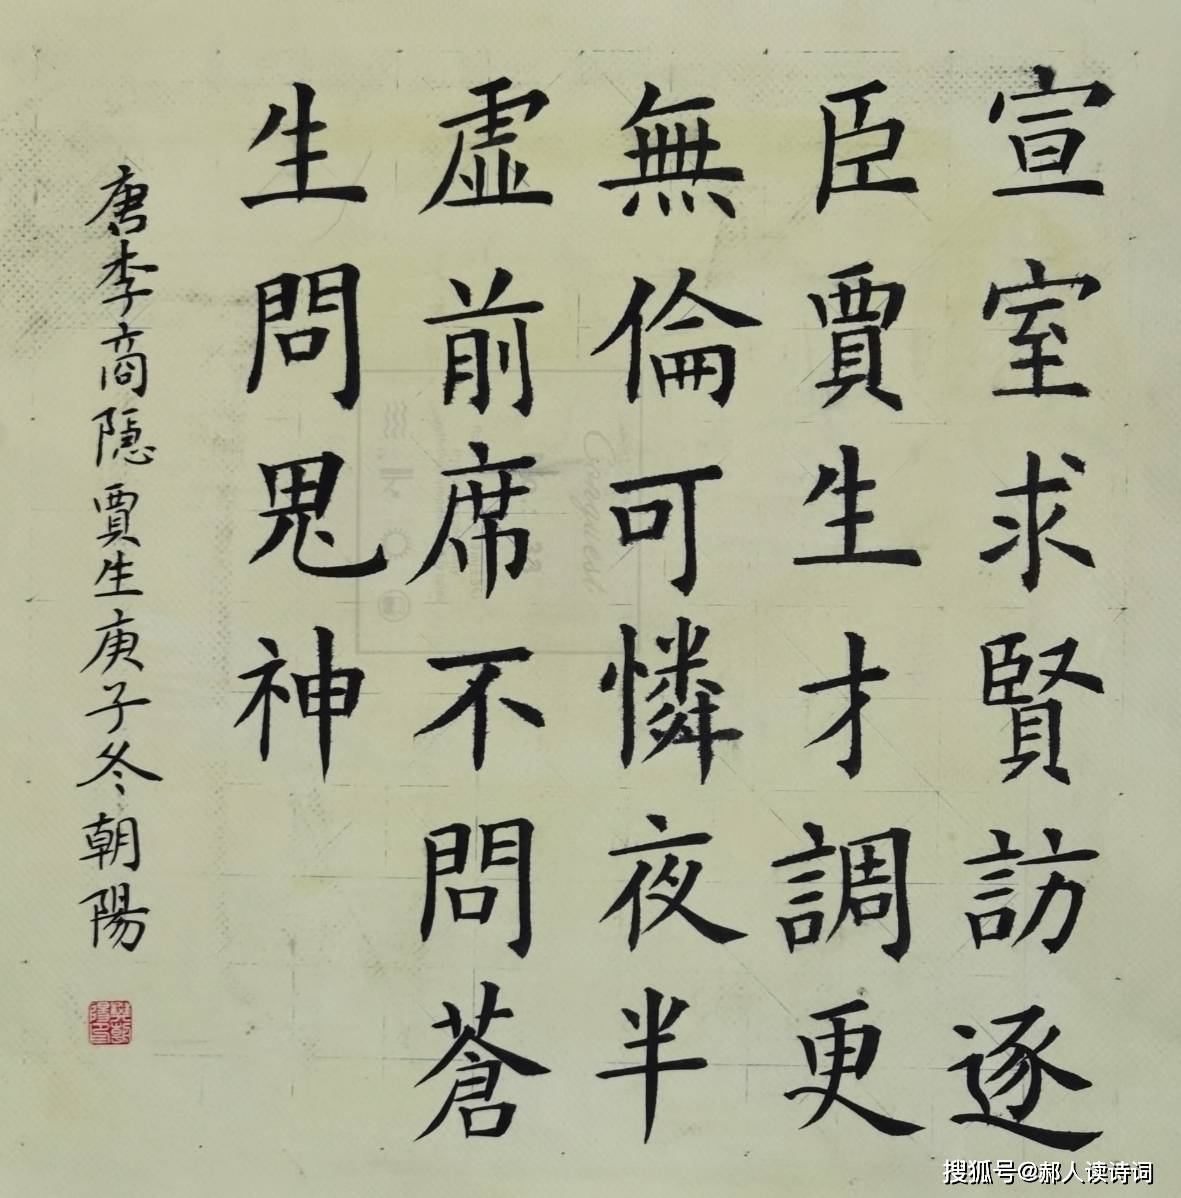 宣室求賢訪逐
臣賈生才調更
無倫可憐夜半
虛前席不問蒼
生問鬼神
唐李商隱賈生庚子冬朝陽
搜狐号@郝人读诗词